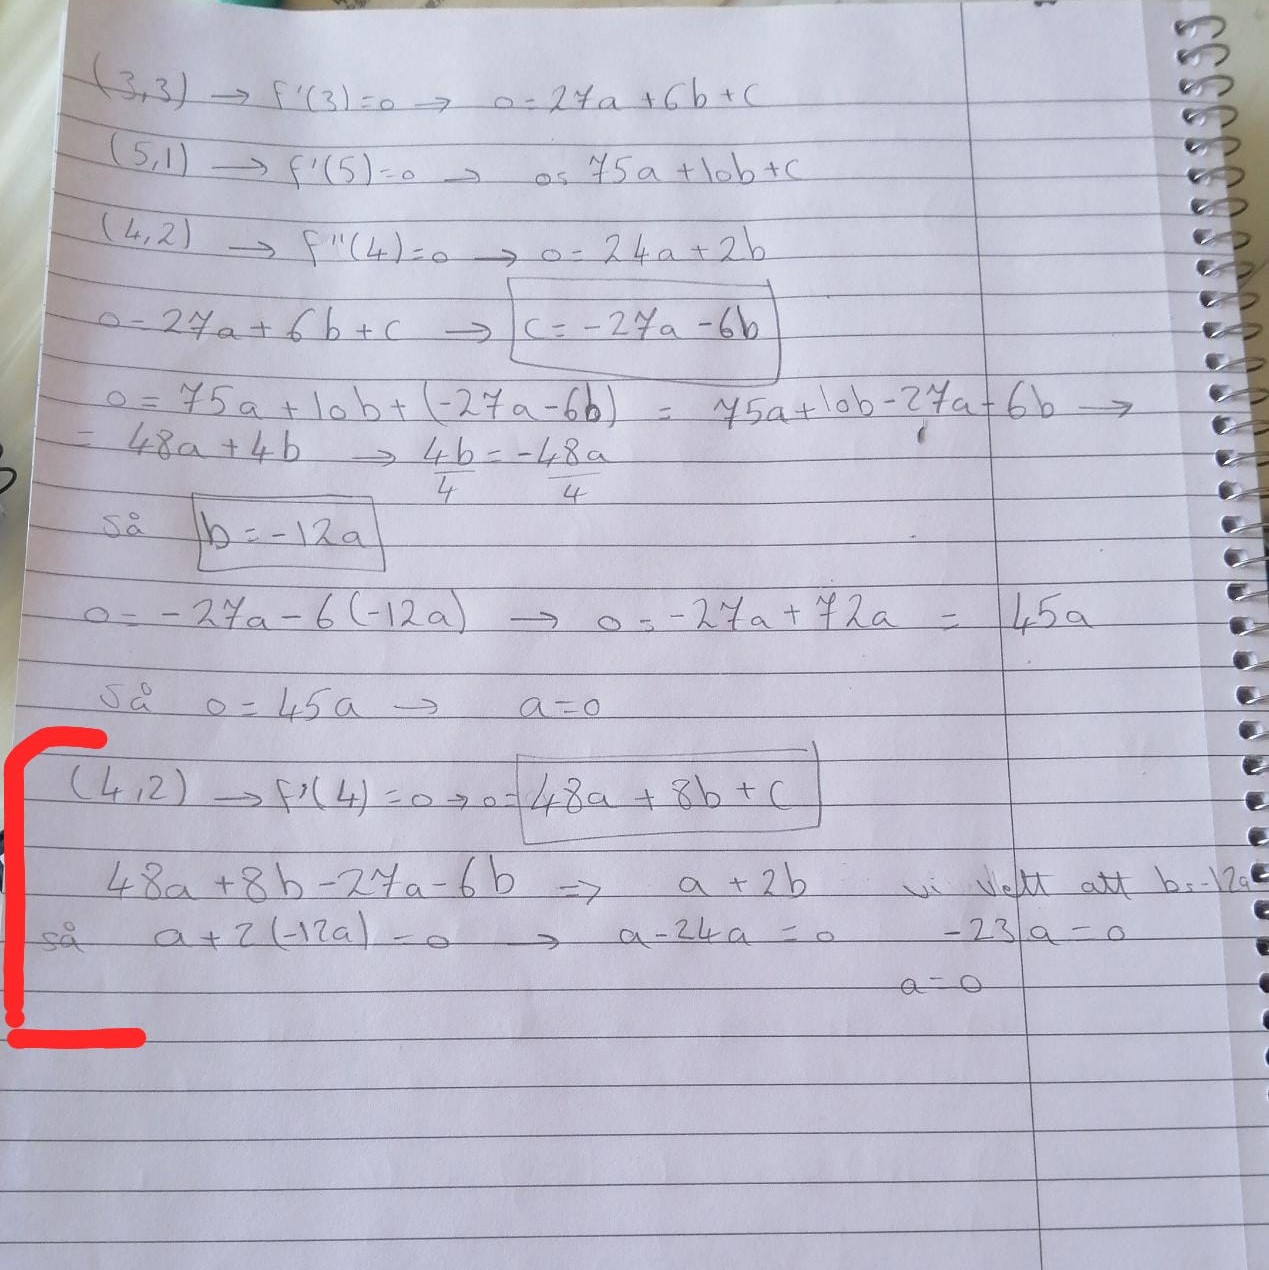 (3,3) → f'(3)=0 → 0=27a+6b+c
(5,1) → f'(5)=0 → 0= 75a+10b+c
(4,2) → f''(4)=0 → 0=24a+2b
0=27a+6b+c → c=-27a-6b
0=75a+10b+(-27a-6b) = 75a+10b-27a-6b →
= 48a+4b → 4b/4 = -48a/4
så b=-12a
0= -27a-6(-12a) → 0=-27a+72a = 45a
så 0=45a → a=0
(4,2) → f'(4)=0→0=48a+8b+c
48a+8b-27a-6b => a+2b vi vett att b=-12a
så a+2(-12a)=0 → a-24a=0 -23a=0
a=0